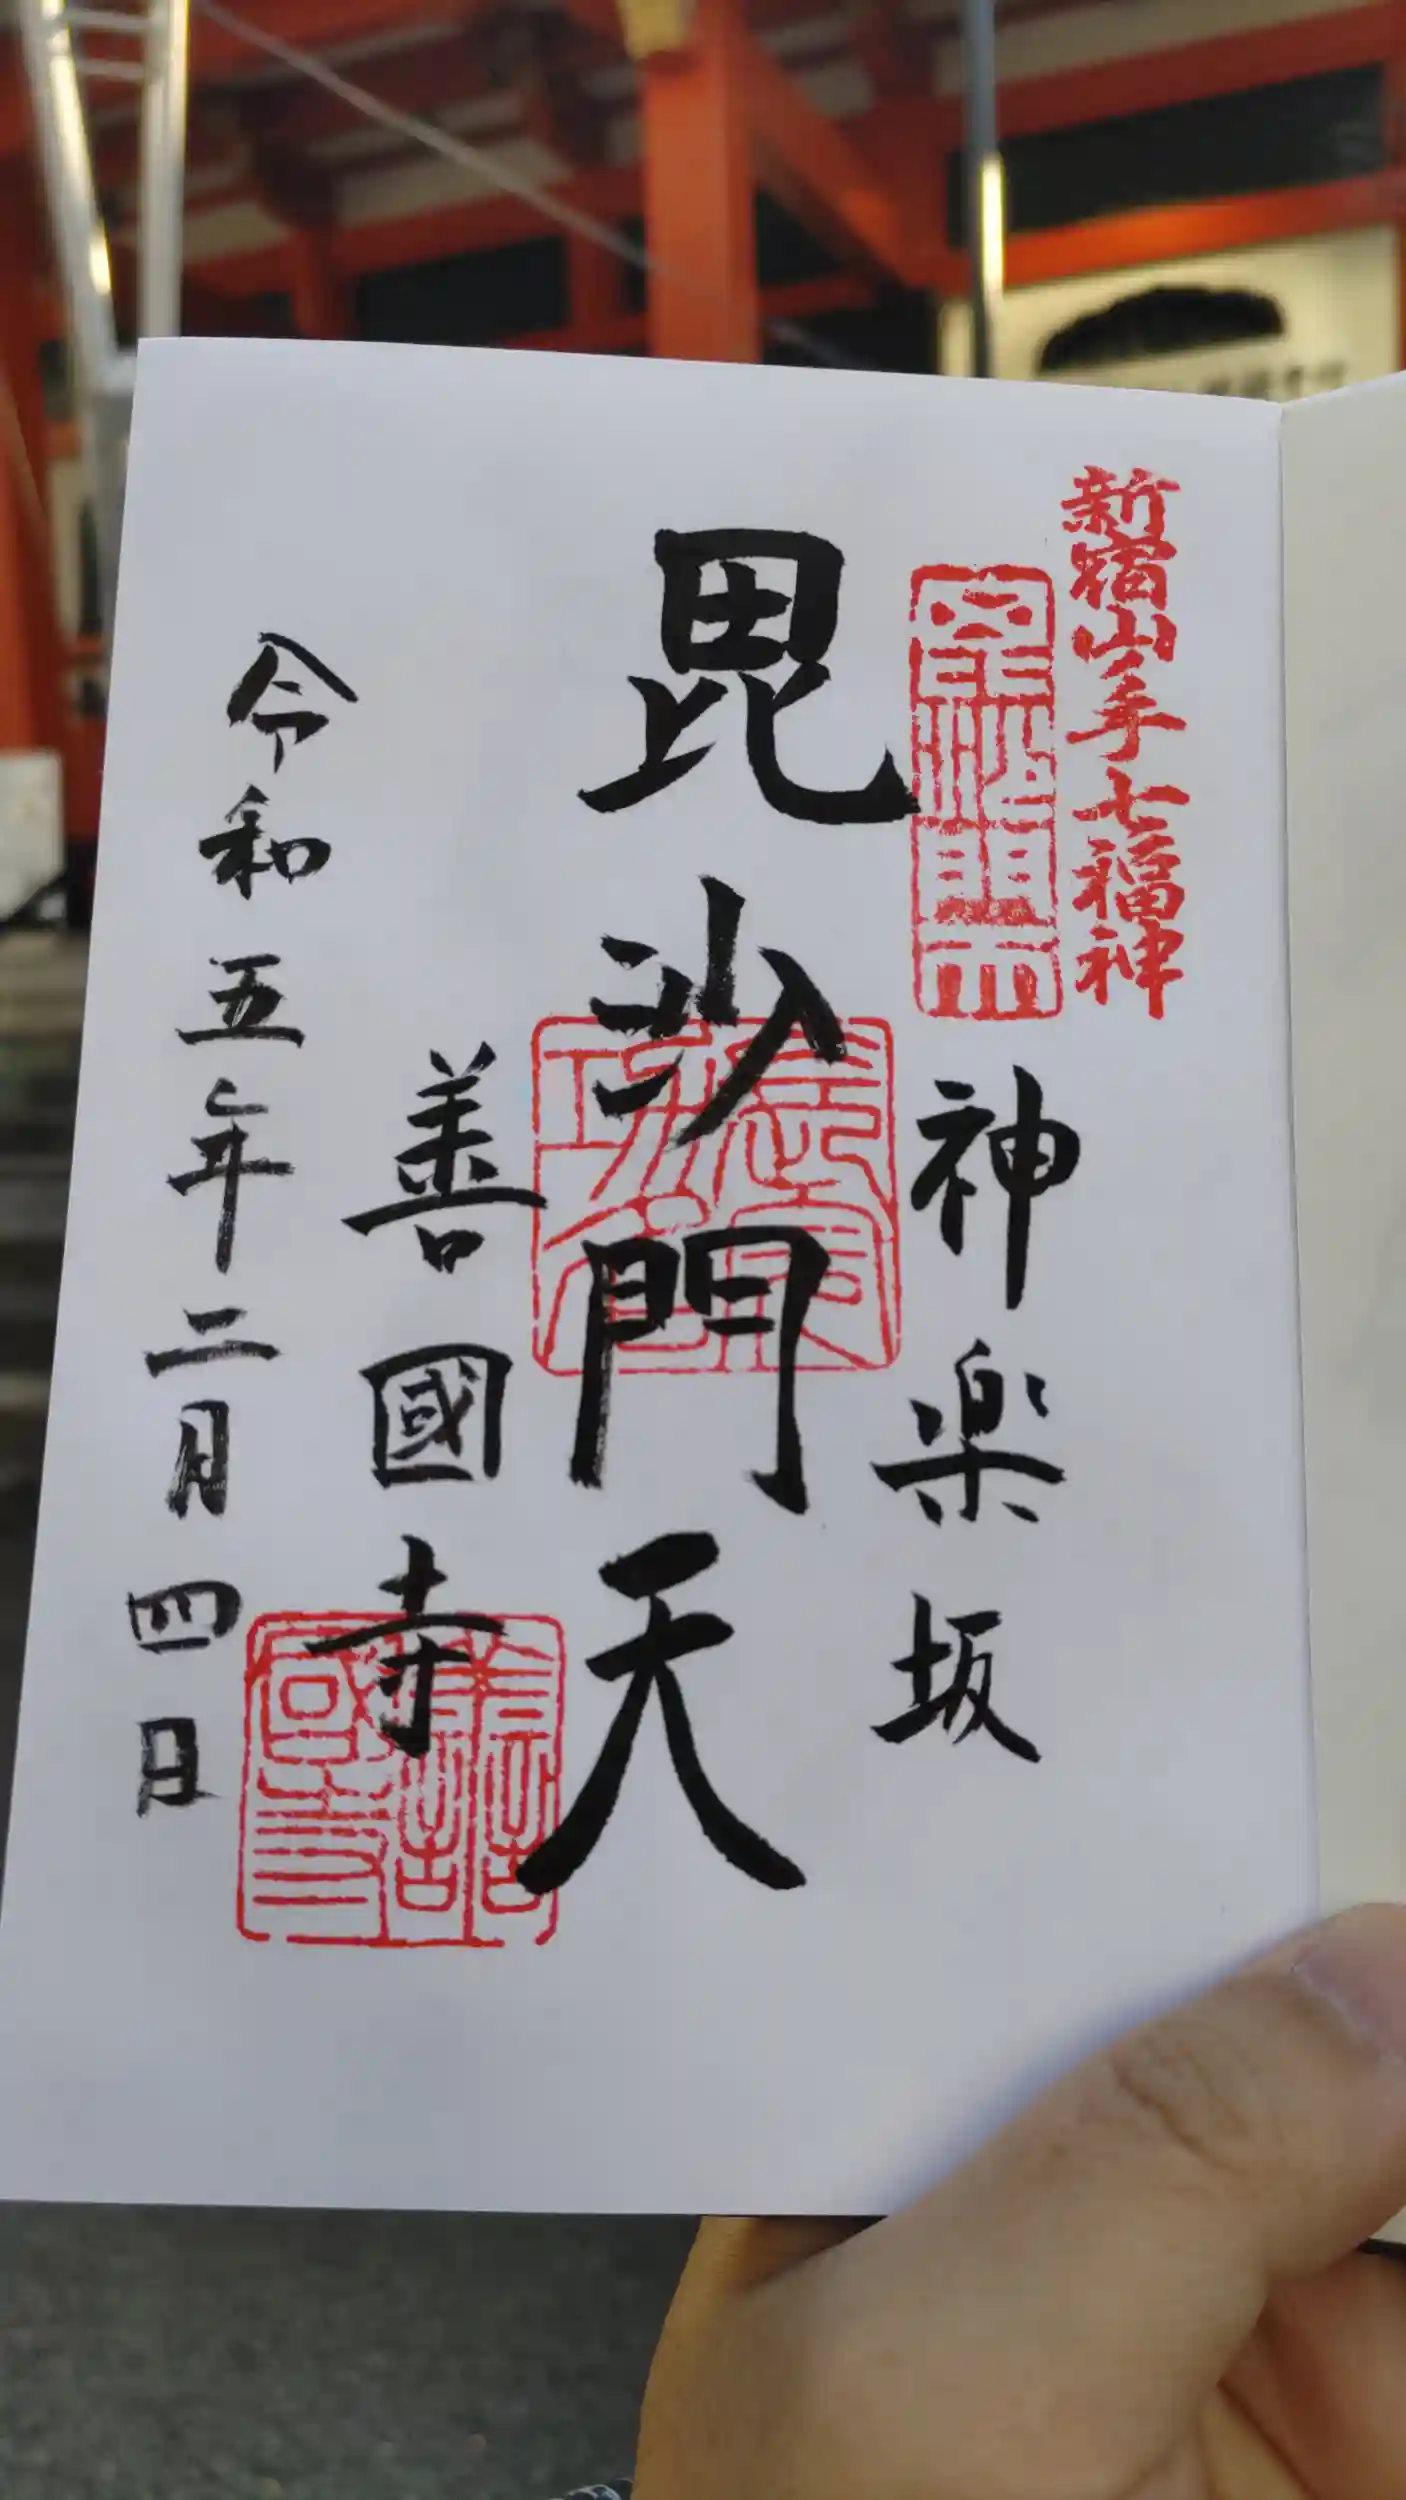 新宿山手七福神
神楽坂
毘沙門天
善國寺
令和五年二月四日